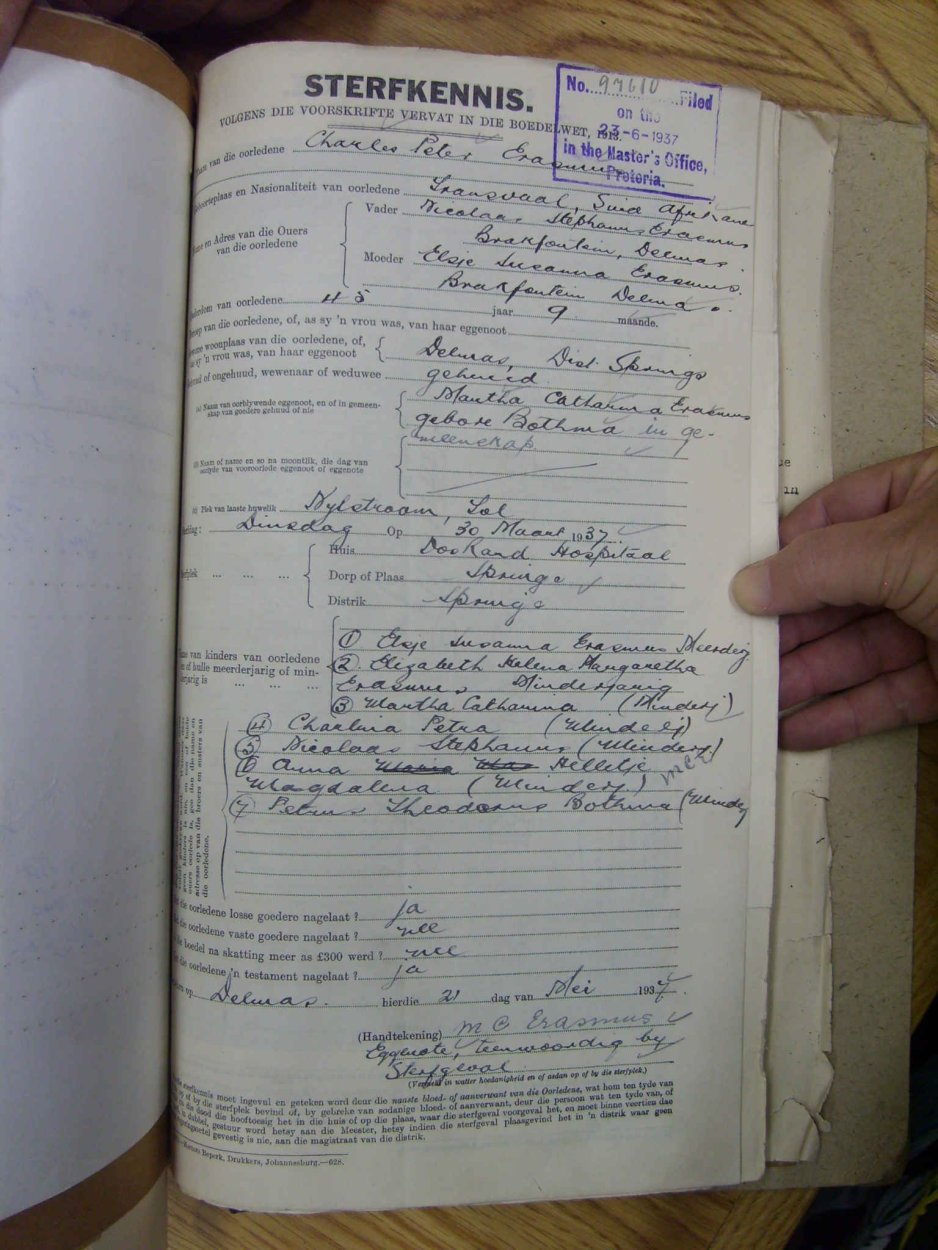 STERFKENNIS.
VOLGENS DIE VOORSKRIFTE VERVAT IN DIE BOEDELWET, 1913.
No. 97610 Filed
on the
23-6-1937
in the Master's Office,
Pretoria.
van die oorledene Charles Peter Erasmus
Geboorteplaas en Nasionaliteit van oorledene Transvaal, Suid Afrikane
Vader Nicolaas Stephanus Erasmus
Brakfontein, Delmas
en Adres van die Ouers
van die oorledene
Moeder Elsje Susanna Erasmus.
Brakfontein Delmas.
van oorledene 45 jaar 9 maande.
van die oorledene, of, as sy 'n vrou was, van haar eggenoot
woonplaas van die oorledene, of,
as sy 'n vrou was, van haar eggenoot Delmas, Dist Springs
of ongehuud, wewenaar of weduwee gehuud
(a) Naam van oorblywende eggenoot, en of in gemeen-
skap van goedere gehuud of nie
Martha Catharina Erasmus
gebore Bothma in ge-
meenskap.
(b) Naam of name en so na moontlik, die dag van
oorlyde van vooroorlede eggenoot of eggenote
(c) Plek van laaste huwelik Nylstroom, Tvl
Dinsdag Op 30 Maart 1937.
Huis Hospitaal
Dorp of Plaas Springs
Distrik Springs
van kinders van oorledene
of hulle meerderjarig of min-
derjarig is
① Elsje Susanna Erasmus Meerderj
② Elizabeth Helena Margaretha
Erasmus Minderjarig
③ Martha Catharina (Minderj)
④ Charlina Petra (Minderj)
⑤ Nicolaas Stephanus (Minderj)
⑥ Anna Maria Helletje
Magdalena (Minderj)
⑦ Petrus Theodorus Bothma (Minderj
die oorledene losse goedere nagelaat ? ja
die oorledene vaste goedere nagelaat ? nee
die boedel na skatting meer as £300 werd ? nee
die oorledene 'n testament nagelaat ? ja
op Delmas. hierdie 21 dag van Mei 1937.
(Handtekening) M C Erasmus
Eggenote, teenwoordig by
Sterfgeval
(Vermeld in watter hoedanigheid en of asdan op of by die sterfplek.)
sterfkennis moet ingevul en geteken word deur die naaste bloed- of aanverwant van die Oorledene, wat hom ten tyde van
of by die sterfplek bevind of, by gebreke van sodanige bloed- of aanverwant, deur die persoon wat ten tyde van, of
die dood die hooftoesig het in die huis of op die plaas, waar die sterfgeval voorgeval het, en moet binne veertien dae
dubbel, gestuur word hetsy aan die Meester, hetsy indien die sterfgeval plaasgevind het in 'n distrik waar geen
gevestig is nie, aan die magistraat van die distrik.
Beperk, Drukkers, Johannesburg.—628.